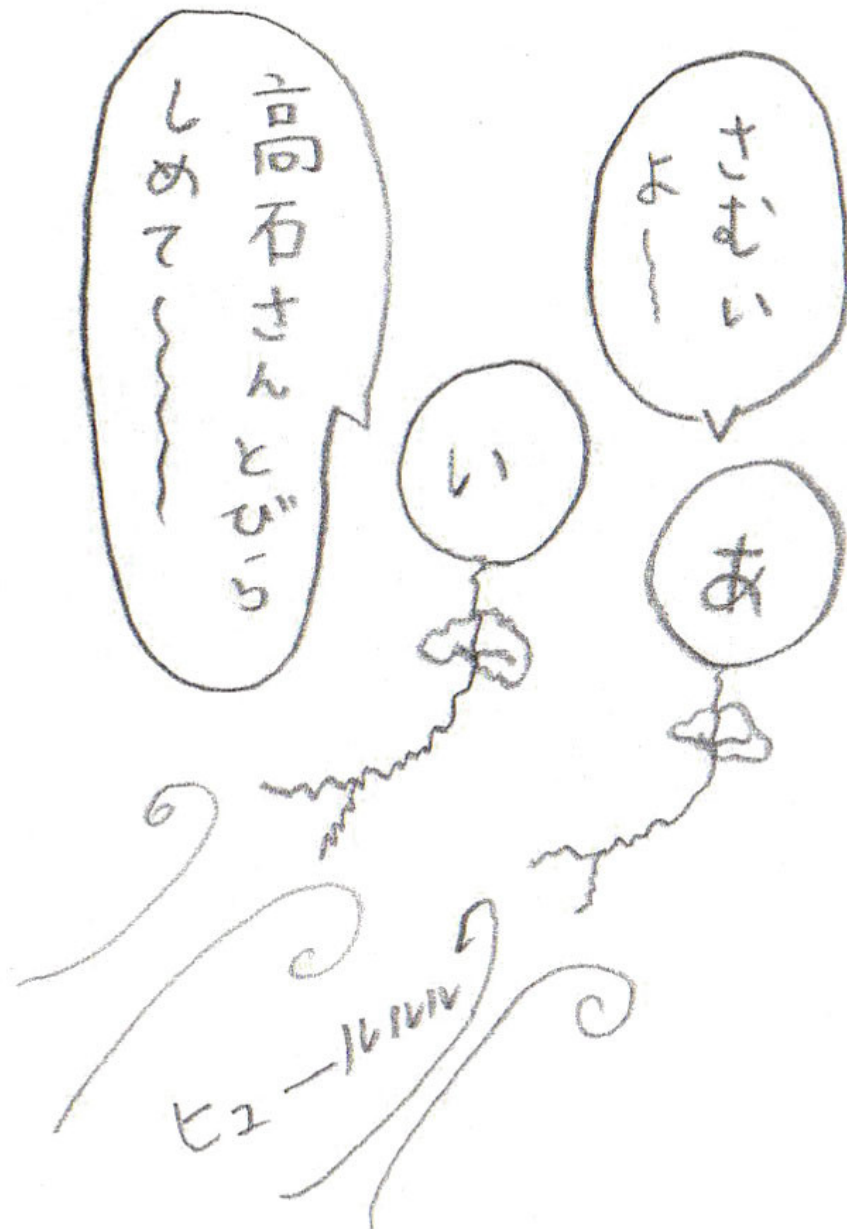 さむい
よ〜
あ
い
高石さんとびら
しめて〜〜〜
ヒュールルル